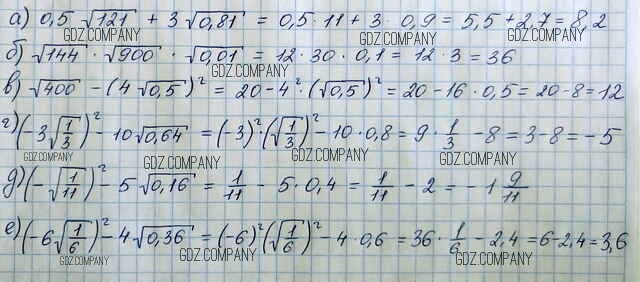 а) 0,5 √121 + 3 √0,81 = 0,5 · 11 + 3 · 0,9 = 5,5 + 2,7 = 8,2
GDZ.COMPANY GDZ.COMPANY GDZ.COMPANY
б) √144 · √900 · √0,01 = 12 · 30 · 0,1 = 12 · 3 = 36
GDZ.COMPANY
в) √400 − (4 √0,5)² = 20 − 4² · (√0,5)² = 20 − 16 · 0,5 = 20 − 8 = 12
GDZ.COMPANY GDZ.COMPANY
г) (−3√(1/3))² − 10 √0,64 = (−3)² · (√(1/3))² − 10 · 0,8 = 9 · 1/3 − 8 = 3 − 8 = −5
GDZ.COMPANY GDZ.COMPANY GDZ.COMPANY
д) (−√(1/11))² − 5 √0,16 = 1/11 − 5 · 0,4 = 1/11 − 2 = −1 9/11
е) (−6√(1/6))² − 4 √0,36 = (−6)² (√(1/6))² − 4 · 0,6 = 36 · 1/6 − 2,4 = 6 − 2,4 = 3,6
GDZ.COMPANY GDZ.COMPANY GDZ.COMPANY